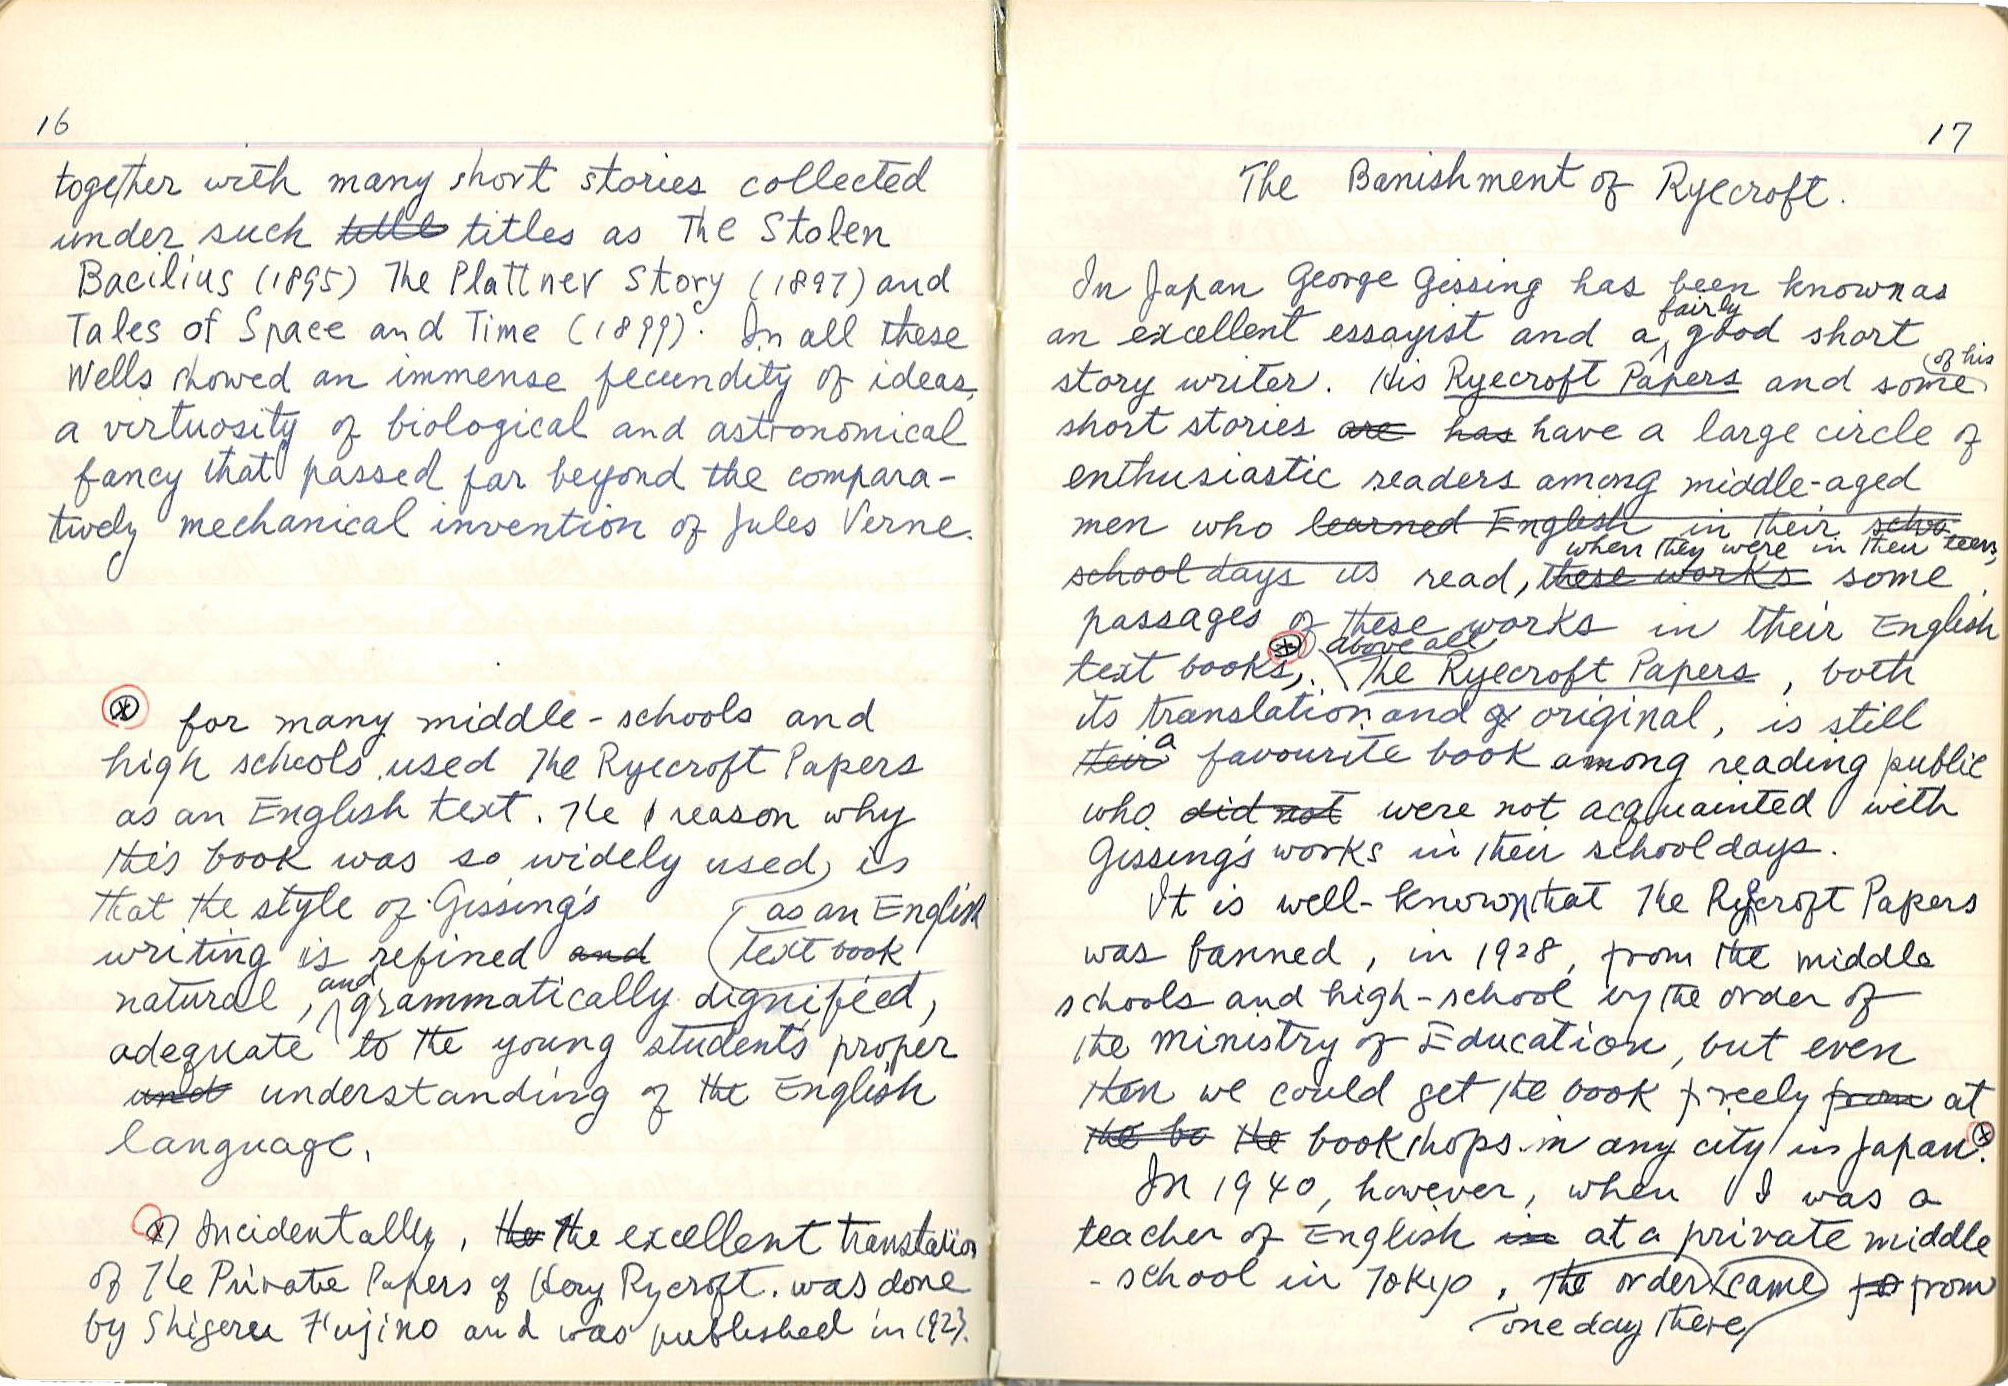 16
together with many short stories collected
under such title titles as The Stolen
Bacilius (1895) The Plattner Story (1897) and
Tales of Space and Time (1899). In all these
Wells showed an immense fecundity of ideas,
a virtuosity of biological and astronomical
fancy that passed far beyond the compara-
tively mechanical invention of Jules Verne.
for many middle-schools and
high schools used The Ryecroft Papers
as an English text. The reason why
this book was so widely used, is
that the style of Gissing's
as an English
text book
writing is refined and
natural, and grammatically dignified,
adequate to the young student's proper
und understanding of the English
language.
Incidentally, the The excellent translation
of The Private Papers of Hery Rycroft. was done
by Shigeru Fujino and was published in 1923.
17
The Banishment of Ryecroft.
In Japan George Gissing has been known as
an excellent essayist and a fairly good short
story writer. His Ryecroft Papers and some of his
short stories are has have a large circle of
enthusiastic readers among middle-aged
men who learned English in their scho
school days us read, when they were in their teens, these works some
passages of these works in their English
text books, above all The Ryecroft Papers, both
its translation and original, is still
their a favourite book among reading public
who did not were not acquainted with
Gissing's works in their schooldays.
It is well-known that The Ryecroft Papers
was banned, in 1928, from the middle
schools and high-school by the order of
the ministry of Education, but even
then we could get the book freely from at
the bo the bookshops in any city in Japan.
In 1940, however, when I was a
teacher of English in at a private middle
-school in Tokyo, the order came fo from
one day there